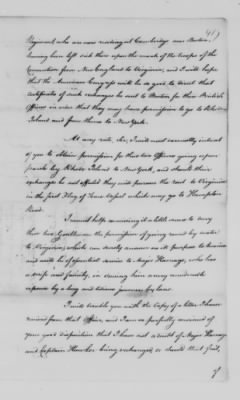 (49)
Regiment, who are now residing at Cambridge near Boston,
having been left out there upon the march of the troops of the
Convention from New England to Virginia, and I will hope
that the American Congress will be so good to direct that
certificates of such exchanges be sent to Boston for these British
Officers in order that they may have permission to go to Rhode
Island and from thence to New York.
At any rate, Sir, I will most earnestly intreat
of you to obtain permission for these two Officers going upon
parole by Rhode Island to New York, and should their
exchange be not effected they will pursue the rout to Virginia
in the first Flag of Truce Vessel which may go to Hampton
Road.
I would hope receiving it a little sooner to carry
these two Gentlemen the permission of going round by water
to Virginia, which can surely answer no ill purpose to America
and will be of essential service to Major Harnage, who has
a wife and family, in saving him a very considerable
expence by a long and tedious journey by land.
I will trouble you with the Copy of a letter I have
received from that Officer, and I am so perfectly convinced of
your good disposition that I have not a doubt of Major Harnage
and Captain Hawker being exchanged, or should that fail,